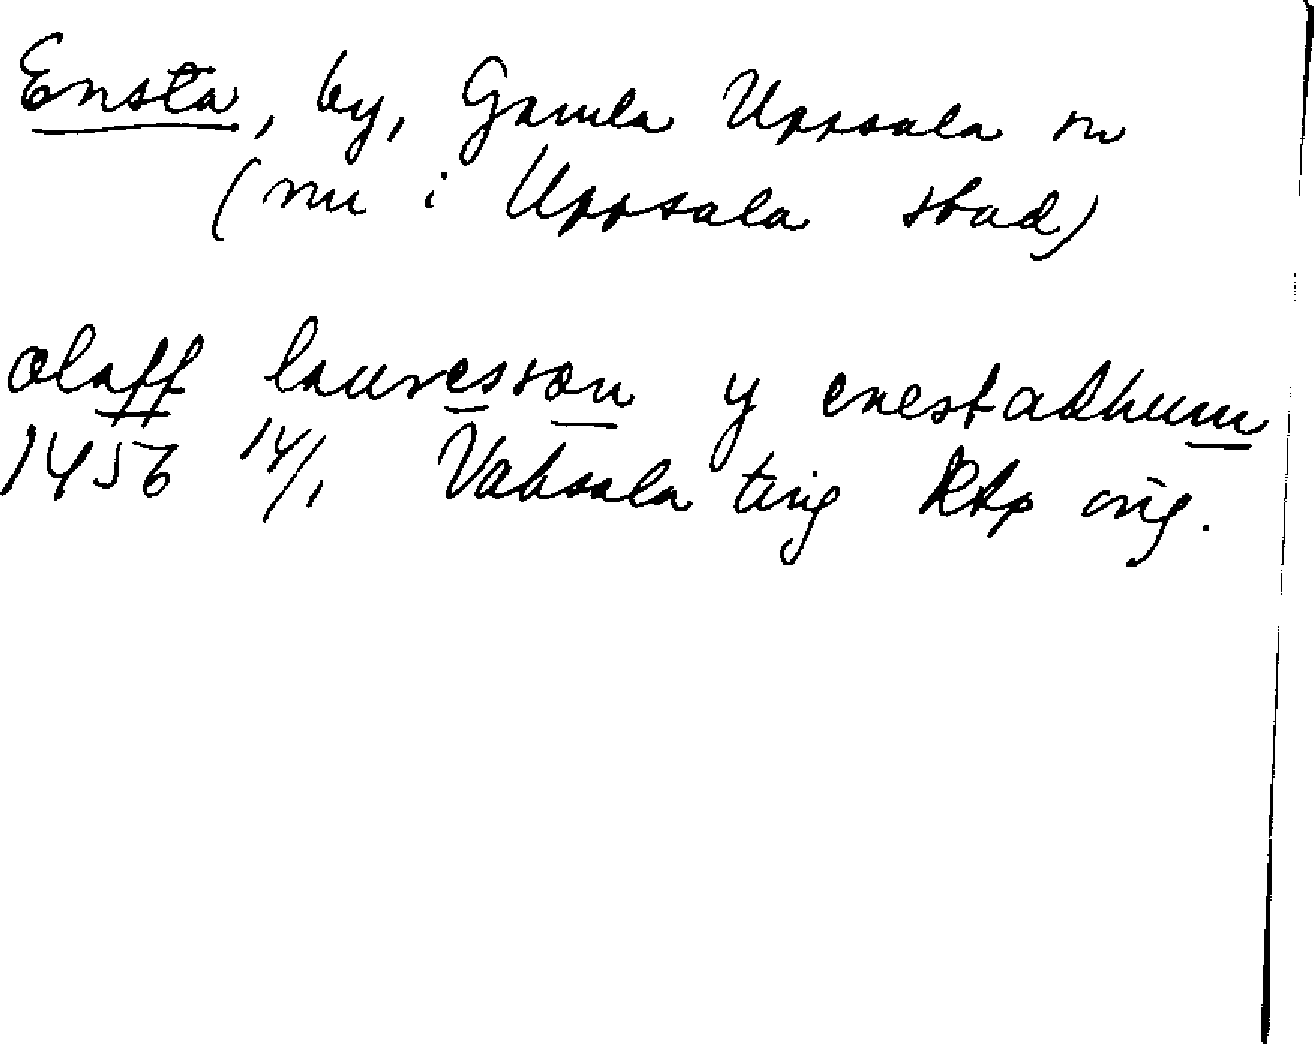 Ensta, by, Gamla Uppsala sn
(nu i Uppsala stad)
olaff lauresson y enestadhum
1456 14/1 Vaksala ting RAp orig.